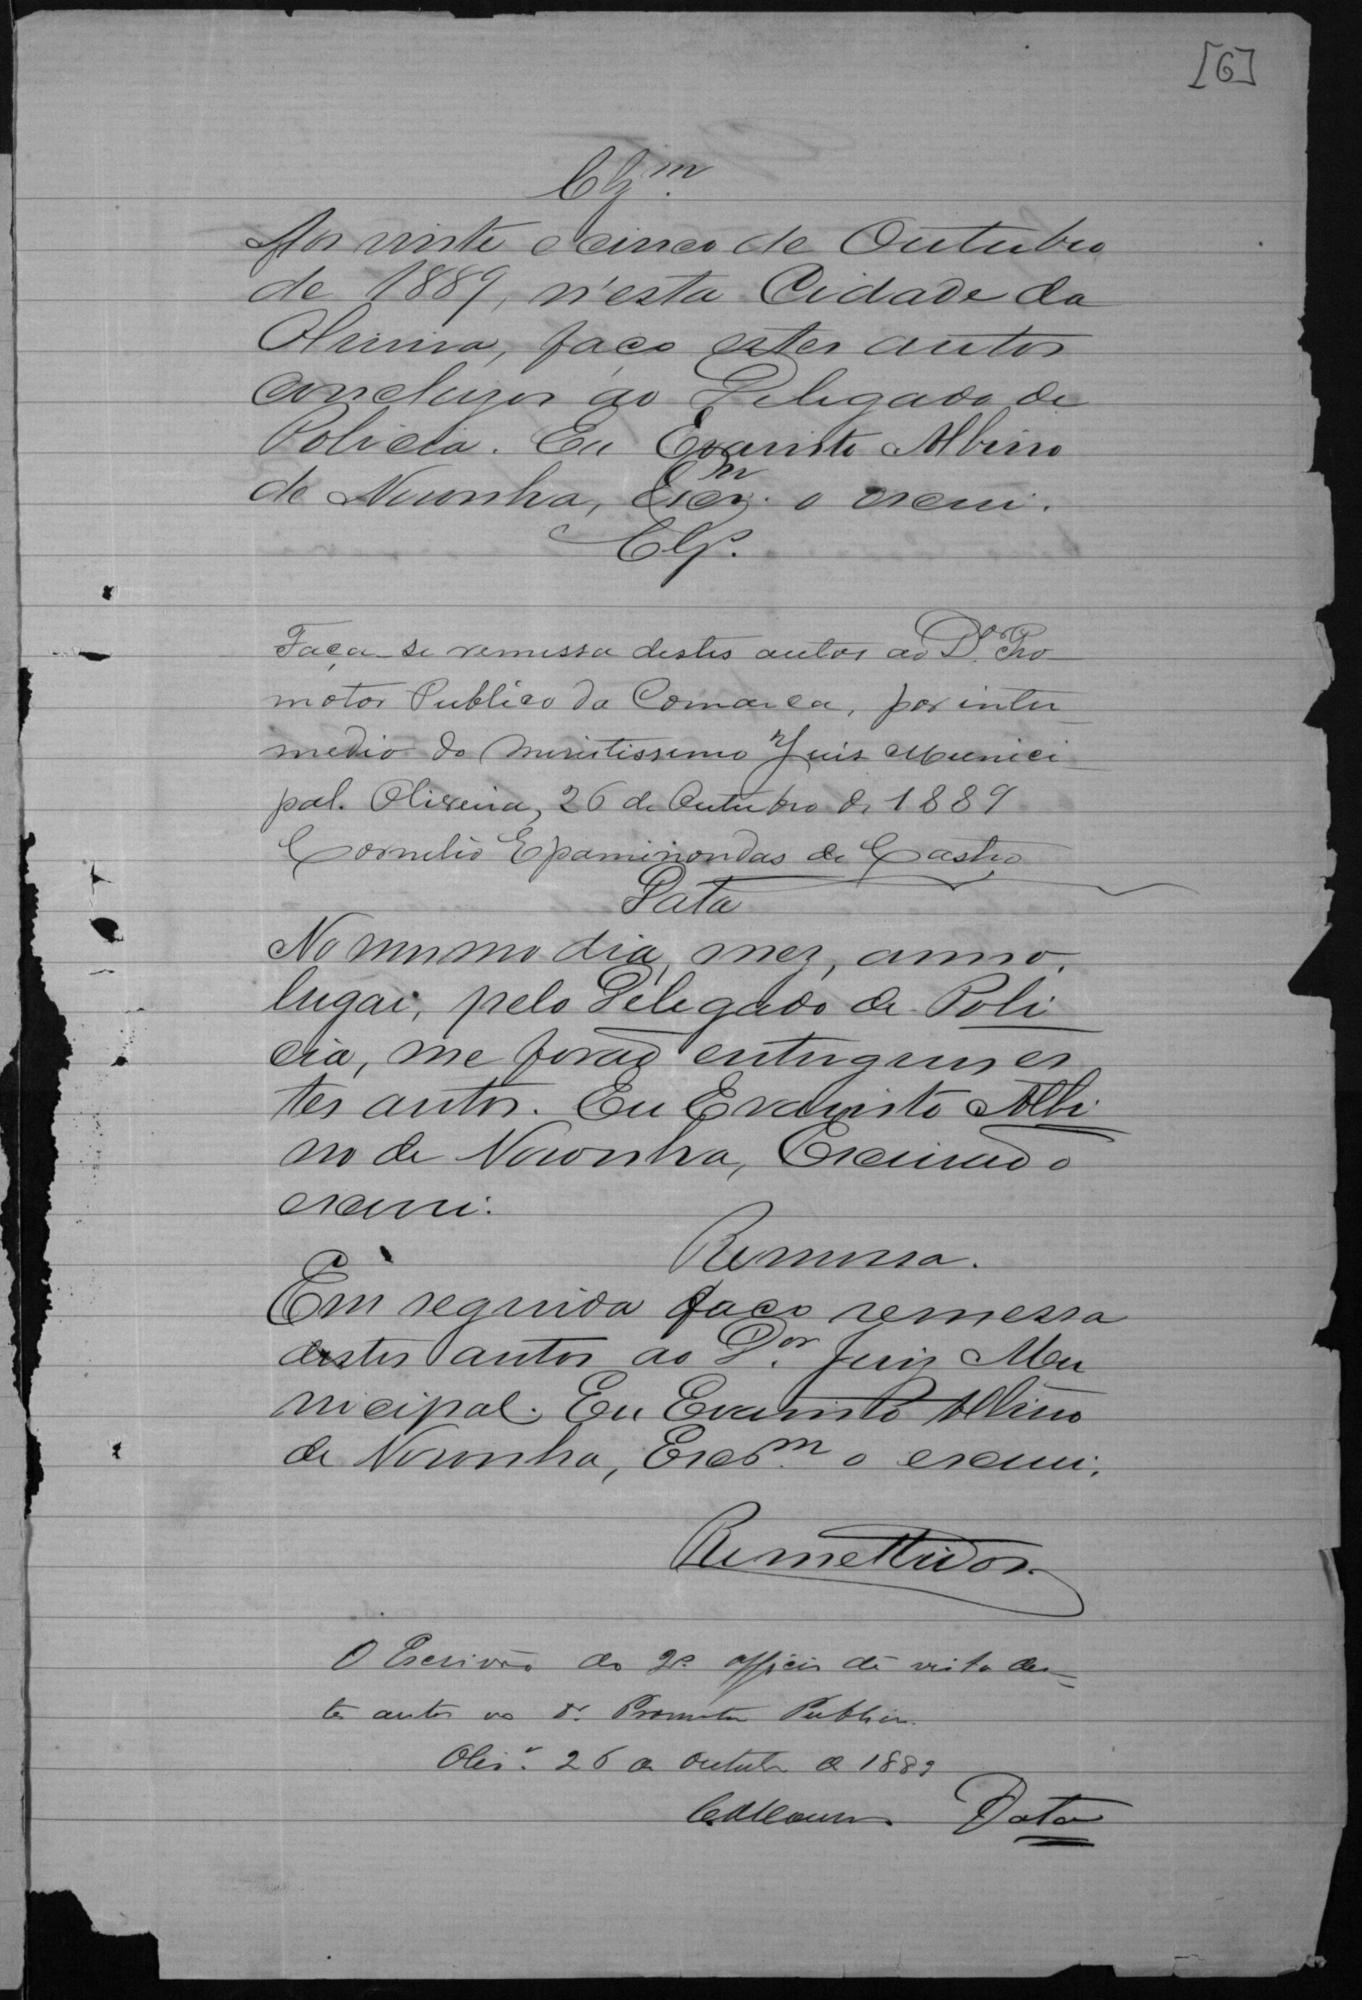 [6]
Clz.m
Aos vinte e cinco de Outubro
de 1889, n'esta Cidade da
Oliveira, faço estes autos
conclusos ao Delegado de
Policia. Eu Evaristo Albino
de Noronha, Escr.m o escrevi.
Clz.
Faça-se remessa destes autos ao Dr. Pro-
motor Publico da Comarca, por inter-
medio do meritissimo Juis Munici-
pal. Oliveira, 26 de Outubro de 1889
Cornelio Epaminondas de Castro
Data
No mesmo dia, mez, anno,
lugar, pelo Delegado de Poli
cia, me forão entregues es
tes autos. Eu Evaristo Albi
no de Noronha, Escrivão o
escrevi.
Remessa.
Em seguida faço remessa
destes autos ao Dor. Juiz Mu
nicipal. Eu Evaristo Albino
de Noronha, Escr.m o escrevi.
Remettidos.
O Escrivão do 2º officio dê vista des=
tes autos ao Dr. Promotor Publico.
Olivª. 26 de Outubro de 1889
Data